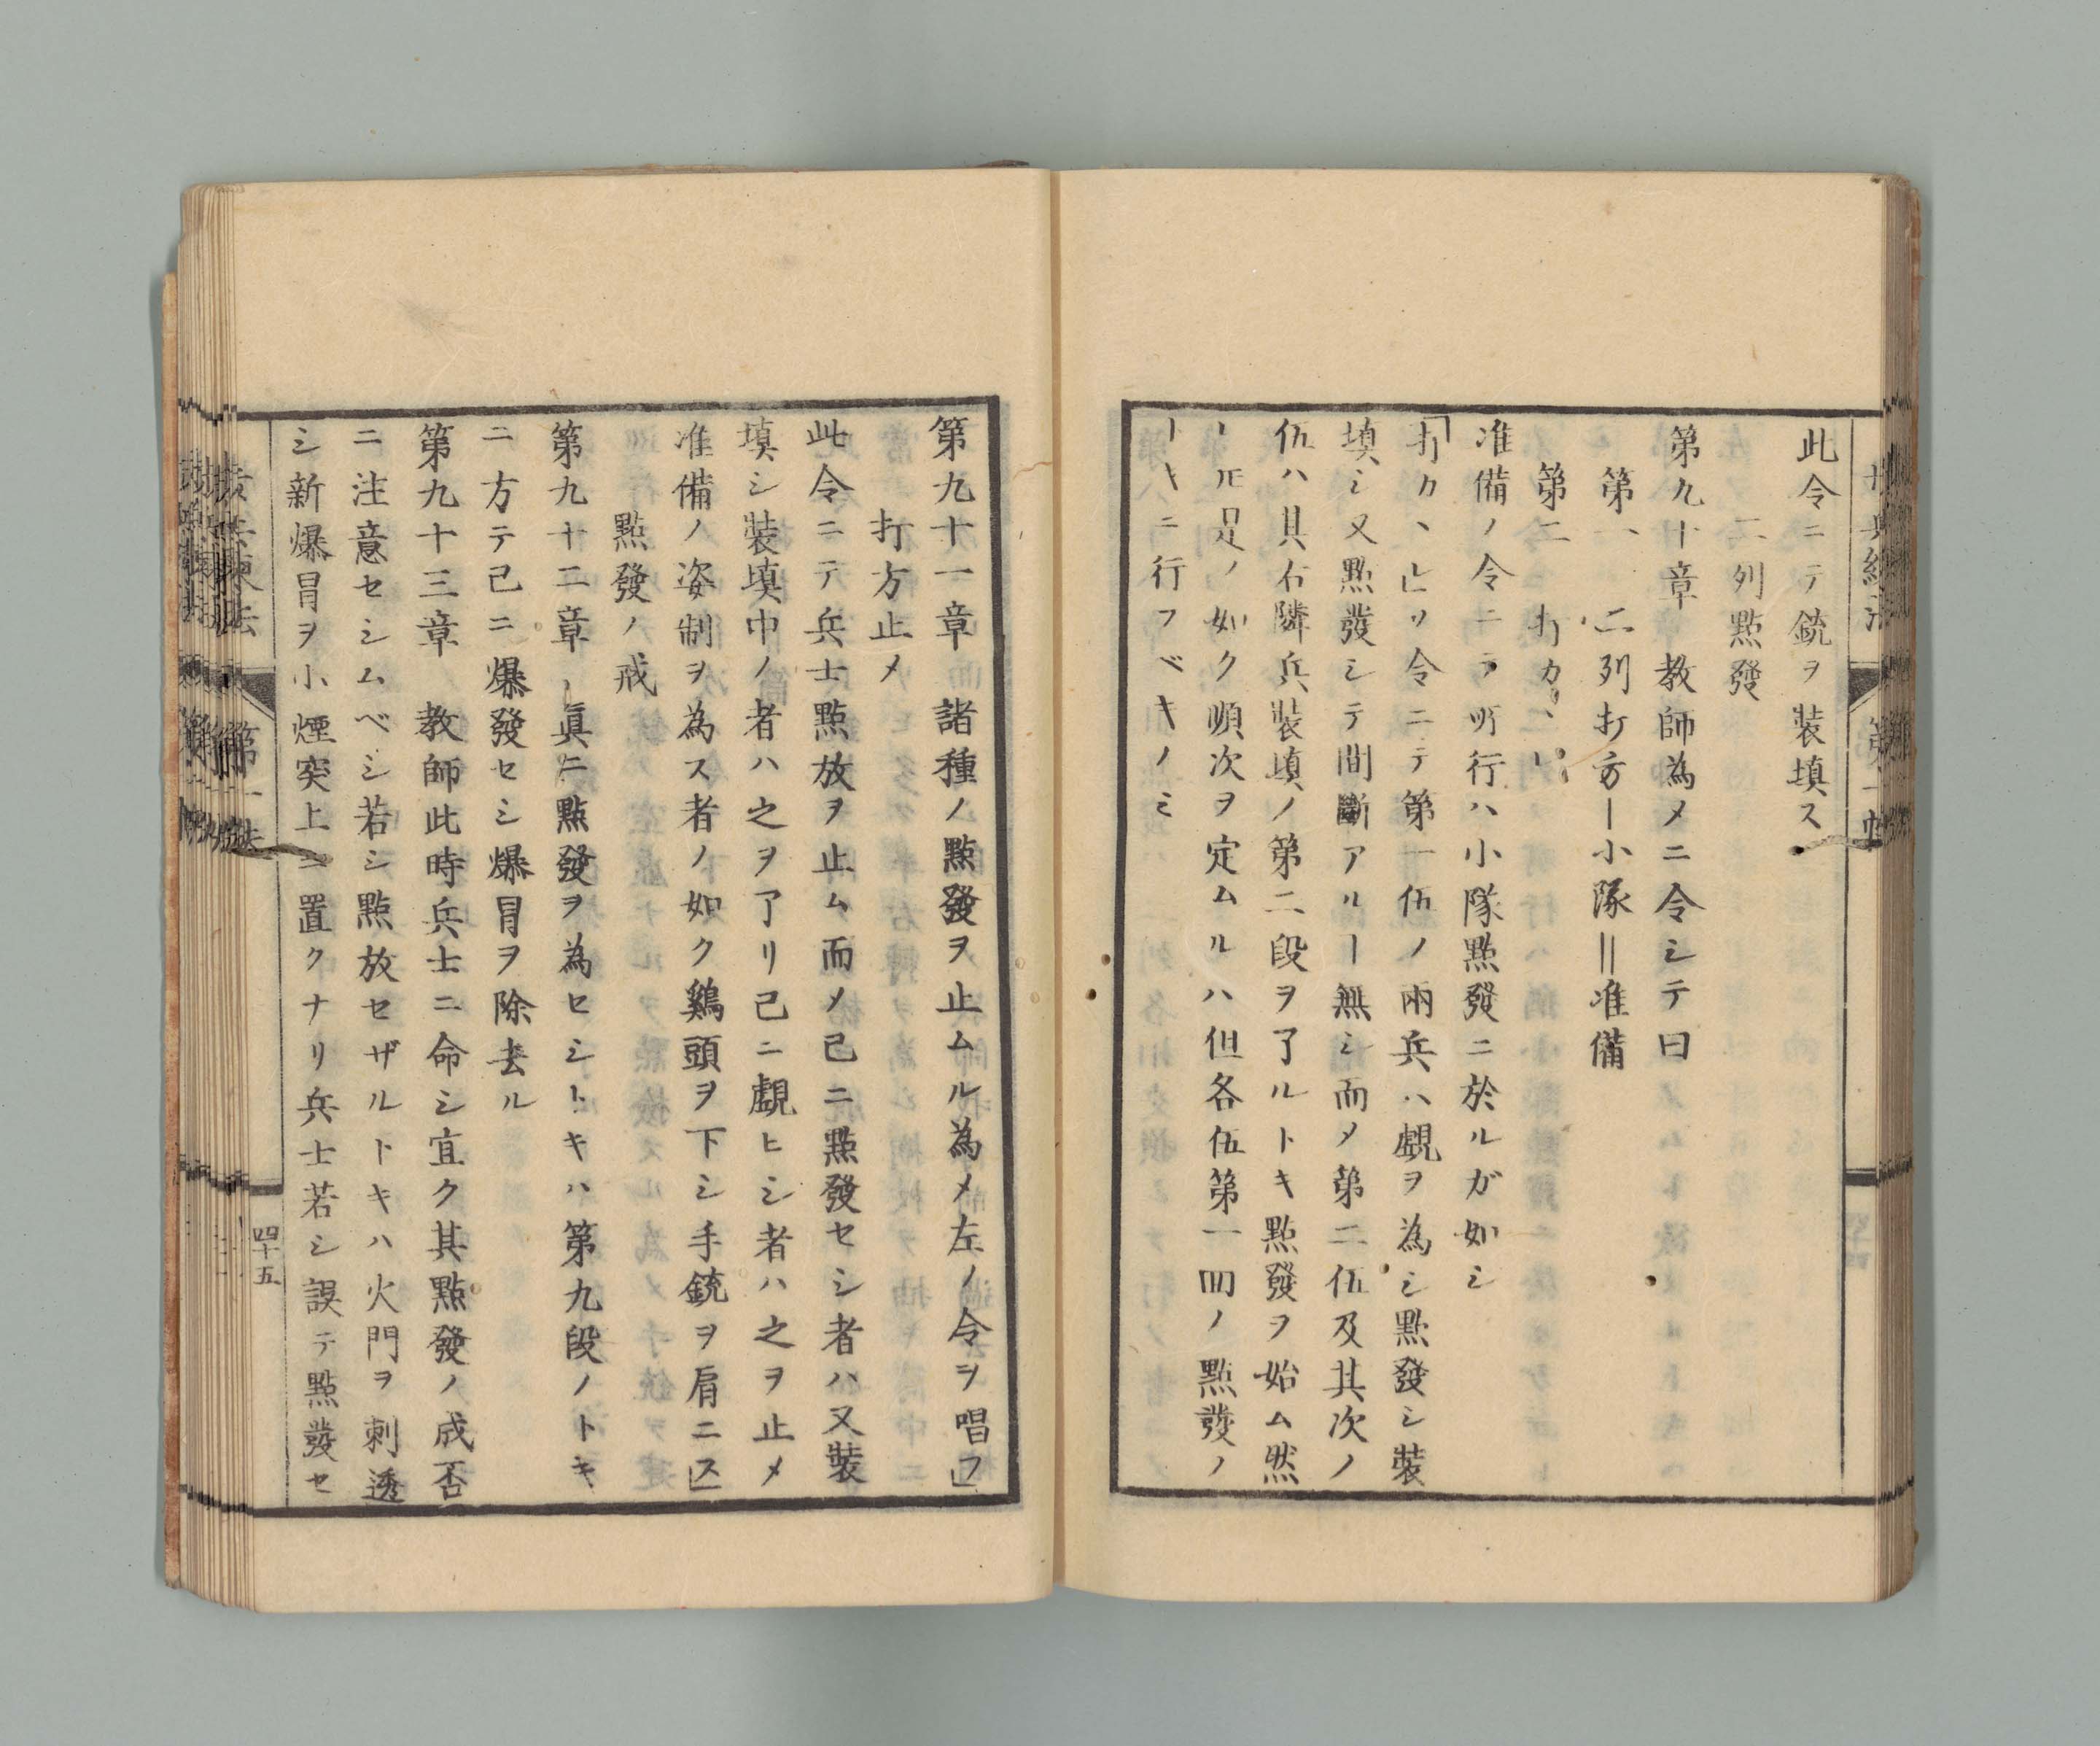 此令ニテ銃ヲ裝填ス
二列點發
第九十章 教師為メニ令シテ曰
第一 二列打方ー小隊=准備
第二 打カヽレ
准備ノ令ニテ所行ハ小隊點發ニ於ルガ如シ
「打カヽレ」ノ令ニテ第一伍ノ兩兵ハ覷ヲ為シ點發シ裝
填シ又點發シテ間斷アルヿ無シ而メ第二伍及其次ノ
伍ハ其右隣兵裝填ノ第二段ヲ了ルトキ點發ヲ始ム然
ㇳ𪜈是ノ如ク順次ヲ定ムルハ但各伍第一回ノ點發ノ
トキニ行フベキノミ
第九十一章 諸種ノ點發ヲ止ムル為メ左ノ令ヲ唱フ」
打方止メ
此令ニテ兵士點放ヲ止ム而メ已ニ點發セシ者ハ又裝
填シ裝填中ノ者ハ之ヲ了リ已ニ覷ヒシ者ハ之ヲ止メ
准備ノ姿制ヲ為ス者ノ如ク鷄頭ヲ下シ手銃ヲ肩ニス」
點發ノ戒
第九十二章 眞ニ點發ヲ為セシトキハ第九段ノトキ
ニ方テ已ニ爆發セシ爆冒ヲ除去ル
第九十三章 教師此時兵士ニ命シ宜ク其點發ノ成否
ニ注意セシムベシ若シ點放セザルトキハ火門ヲ刺透
シ新爆冒ヲ小煙突上ニ置クナリ兵士若シ誤テ點發セ
第一
四十五